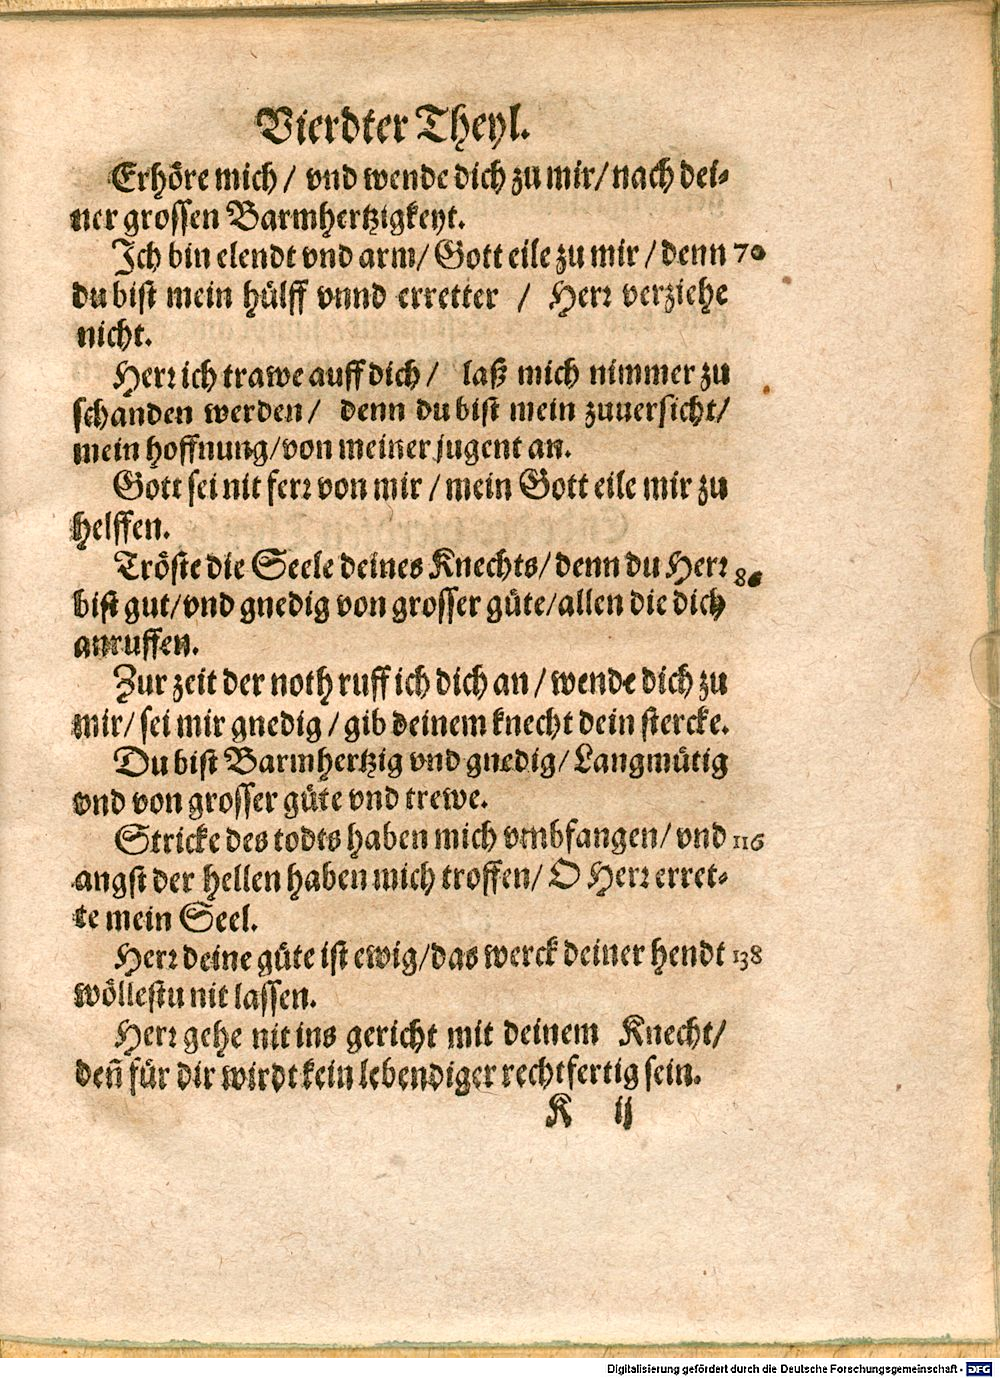 Vierdter Theyl.
Erhöre mich / vnd wende dich zu mir / nach dei-
ner grossen Barmhertzigkeyt.
Ich bin elendt vnd arm / Gott eile zu mir / denn 70
du bist mein hülff vnnd erretter / Herr verziehe
nicht.
Herr ich trawe auff dich / laß mich nimmer zu
schanden werden / denn du bist mein zuuersicht /
mein hoffnung / von meiner jugent an.
Gott sei nit ferr von mir / mein Gott eile mir zu
helffen.
Tröste die Seele deines Knechts / denn du Herr 86
bist gut / vnd gnedig von grosser güte / allen die dich
anruffen.
Zur zeit der noth ruff ich dich an / wende dich zu
mir / sei mir gnedig / gib deinem knecht dein stercke.
Du bist Barmhertzig vnd gnedig / Langmütig
vnd von grosser güte vnd trewe.
Stricke des todts haben mich vmbfangen / vnd 116
angst der hellen haben mich troffen / O Herr erret-
te mein Seel.
Herr deine güte ist ewig / das werck deiner hendt 138
wöllestu nit lassen.
Herr gehe nit ins gericht mit deinem Knecht /
deñ für dir wirdt kein lebendiger rechtfertig sein.
K ij
Digitalisierung gefördert durch die Deutsche Forschungsgemeinschaft - DFG